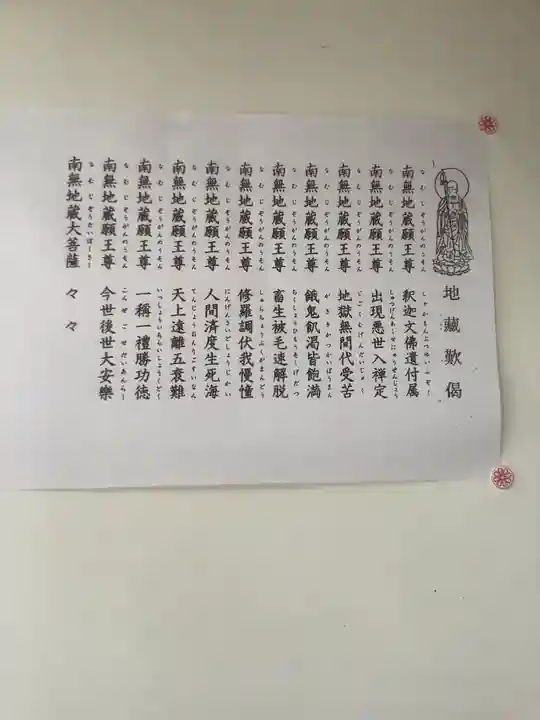 地藏歎偈
南無地蔵願王尊 釈迦文佛遺付属
なむじぞうがんのうそん しゃかもんぶつゆいふぞく
南無地蔵願王尊 出現悪世入禅定
なむじぞうがんのうそん
南無地蔵願王尊 地獄無間代受苦
なむじぞうがんのうそん じごくむげんだいじゅく
南無地蔵願王尊 餓鬼飢渇皆飽満
なむじぞうがんのうそん がききかつかいぼうまん
南無地蔵願王尊 畜生被毛速解脱
なむじぞうがんのうそん ちくしょうひもうそくげだつ
南無地蔵願王尊 修羅調伏我慢憧
なむじぞうがんのうそん しゅらちょうぶくがまんどう
南無地蔵願王尊 人間済度生死海
なむじぞうがんのうそん にんげんさいどしょうじかい
南無地蔵願王尊 天上遠離五衰難
なむじぞうがんのうそん てんじょうおんりごすいなん
南無地蔵願王尊 一稱一禮勝功徳
なむじぞうがんのうそん
南無地蔵願王尊 今世後世大安樂
なむじぞうがんのうそん こんぜごせだいあんらー
南無地蔵大菩薩 々々
なむじぞうだいぼーさー